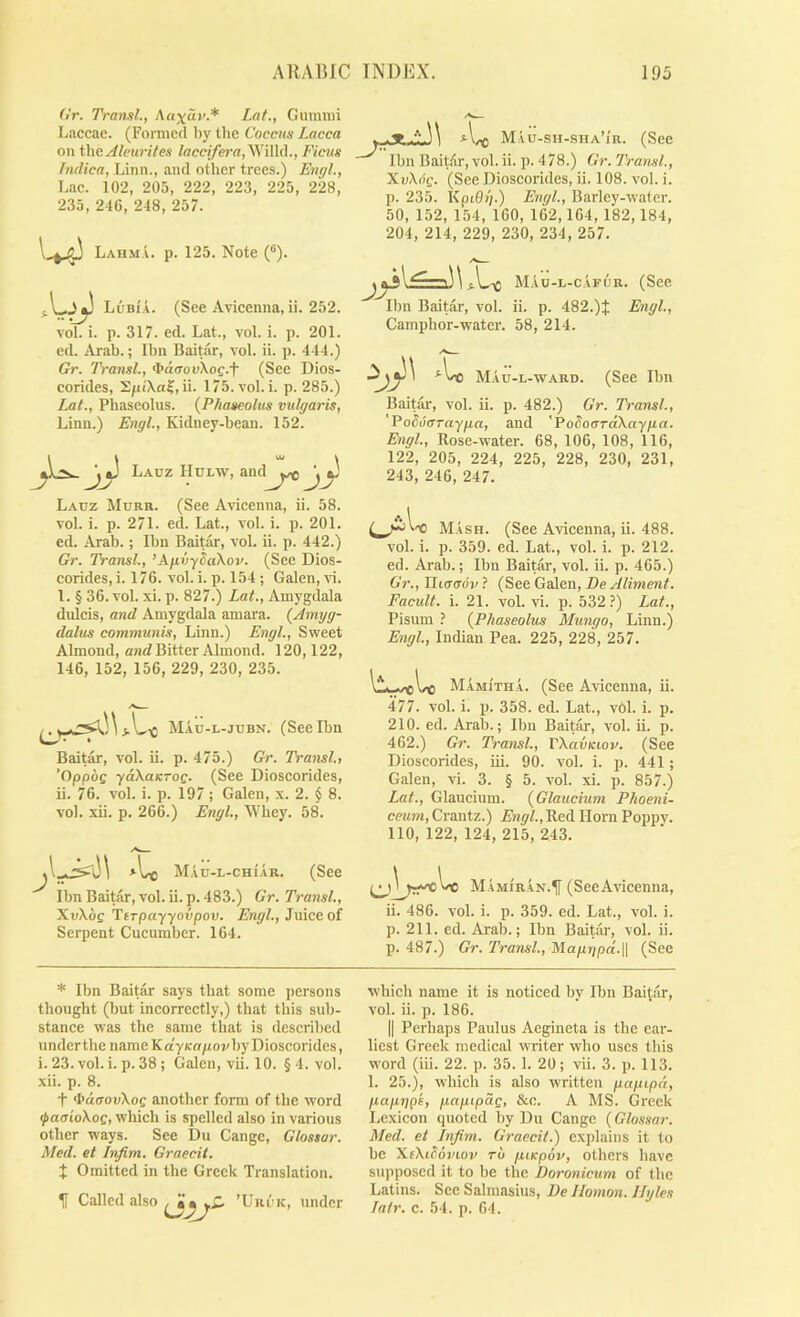 ARABIC INDEX. 195
Gr. Transl., Λαχᾶν.* Lat., Gummi
Laccae. (Formed by the Coccus Lacca
on the Aleurites laccifera, Willd., Ficus
Indica, Linn., and other trees.) Engl.,
Lac. 102, 205, 222, 223, 225, 228,
235, 246, 248, 257.
LAHMÁ. p. 125. Note (⁶).
لوبياء LÚBÍÁ. (See Avicenna, ii. 252.
vol. i. p. 317. ed. Lat., vol. i. p. 201.
ed. Arab.; Ibn Baitár, vol. ii. p. 444.)
Gr. Transl., Φάσουλος.† (See Dios-
corides, Σμίλαξ, ii. 175. vol. i. p. 285.)
Lat., Phaseolus. (Phaseolus vulgaris,
Linn.) Engl., Kidney-bean. 152.
لوز حلو LAUZ HULW, and لوز مر
LAUZ MURR. (See Avicenna, ii. 58.
vol. i. p. 271. ed. Lat., vol. i. p. 201.
ed. Arab.; Ibn Baitár, vol. ii. p. 442.)
Gr. Transl., Ἀμύγδαλον. (See Dios-
corides, i. 176. vol. i. p. 154; Galen, vi.
1. § 36. vol. xi. p. 827.) Lat., Amygdala
dulcis, and Amygdala amara. (Amyg-
dalus communis, Linn.) Engl., Sweet
Almond, and Bitter Almond. 120, 122,
146, 152, 156, 229, 230, 235.
ماء الجبن MÁÜ-L-JUBN. (See Ibn
Baitár, vol. ii. p. 475.) Gr. Transl.,
Ὀῤῥὸς γάλακτος. (See Dioscorides,
ii. 76. vol. i. p. 197; Galen, x. 2. § 8.
vol. xii. p. 266.) Engl., Whey. 58.
ماء الخيار MÁÜ-L-CHIÁR. (See
Ibn Baitár, vol. ii. p. 483.) Gr. Transl.,
Χυλὸς Τετραγγούρου. Engl., Juice of
Serpent Cucumber. 164.
ماء الشعير MÁÜ-SH-SHA'ÍR. (See
Ibn Baitár, vol. ii. p. 478.) Gr. Transl.,
Χυλός. (See Dioscorides, ii. 108. vol. i.
p. 235. Κριθή.) Engl., Barley-water.
50, 152, 154, 160, 162, 164, 182, 184,
204, 214, 229, 230, 234, 257.
ماء الكافور MÁÜ-L-CÁFÚR. (See
Ibn Baitár, vol. ii. p. 482.)‡ Engl.,
Camphor-water. 58, 214.
ماء الورد MÁÜ-L-WARD. (See Ibn
Baitár, vol. ii. p. 482.) Gr. Transl.,
Ῥοδόσταγμα, and Ῥοδοστάλαγμα.
Engl., Rose-water. 68, 106, 108, 116,
122, 205, 224, 225, 228, 230, 231,
243, 246, 247.
ماش MÁSH. (See Avicenna, ii. 488.
vol. i. p. 359. ed. Lat., vol. i. p. 212.
ed. Arab.; Ibn Baitár, vol. ii. p. 465.)
Gr., Πισσόν? (See Galen, De Aliment.
Facult. i. 21. vol. vi. p. 532?) Lat.,
Pisum? (Phaseolus Mungo, Linn.)
Engl., Indian Pea. 225, 228, 257.
ماميثا MÁMÍTHÁ. (See Avicenna, ii.
477. vol. i. p. 358. ed. Lat., vól. i. p.
210. ed. Arab.; Ibn Baitár, vol. ii. p.
462.) Gr. Transl., Γλαύκιον. (See
Dioscorides, iii. 90. vol. i. p. 441;
Galen, vi. 3. § 5. vol. xi. p. 857.)
Lat., Glaucium. (Glaucium Phoeni-
ceum, Crantz.) Engl., Red Horn Poppy.
110, 122, 124, 215, 243.
ماميران MÁMÍRÁN.¶ (See Avicenna,
ii. 486. vol. i. p. 359. ed. Lat., vol. i.
p. 211. ed. Arab.; Ibn Baitár, vol. ii.
p. 487.) Gr. Transl., Μαμηρά.|| (See
* Ibn Baitár says that some persons
thought (but incorrectly,) that this sub-
stance was the same that is described
under the name Κάγκαμον by Dioscorides,
i. 23. vol. i. p. 38; Galen, vii. 10. § 4. vol.
xii. p. 8.
† Φάσουλος another form of the word
φασίολος, which is spelled also in various
other ways. See Du Cange, Glossar.
Med. et Infim. Graecit.
‡ Omitted in the Greek Translation.
¶ Called also عروق 'URÚK, under
which name it is noticed by Ibn Baitár,
vol. ii. p. 186.
|| Perhaps Paulus Aegineta is the ear-
liest Greek medical writer who uses this
word (iii. 22. p. 35. l. 20; vii. 3. p. 113.
l. 25.), which is also written μαμιρά,
μαμηρέ, μαμιρᾶς, &c. A MS. Greek
Lexicon quoted by Du Cange (Glossar.
Med. et Infim. Graecit.) explains it to
be Χελιδόνιον τὸ μικρόν, others have
supposed it to be the Doronicum of the
Latins. See Salmasius, De Homon. Hyles
Iatr. c. 54. p. 64.